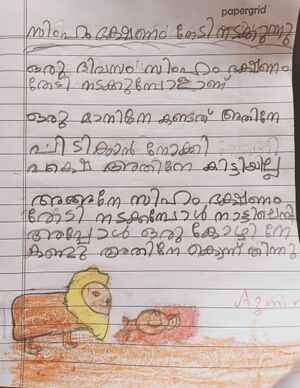 papergrid
സിംഹം ഭക്ഷണം തേടി നടക്കുന്നു
ഒരു ദിവസം സിംഹം ഭക്ഷണം
തേടി നടക്കുമ്പോളാണ്
ഒരു മാനിനേ കണ്ടത് അതിനേ
പിടിക്കാൻ നോക്കി
പക്ഷെ അതിനേ കിട്ടിയില്ല
അങ്ങനേ സിംഹം ഭക്ഷണം
തേടി നടക്കുമ്പോൾ നാട്ടിലെത്തി
അപ്പോൾ ഒരു കോഴിനേ
കണ്ടു അതിനേ കൊന്ന് തിന്നു
Azmir